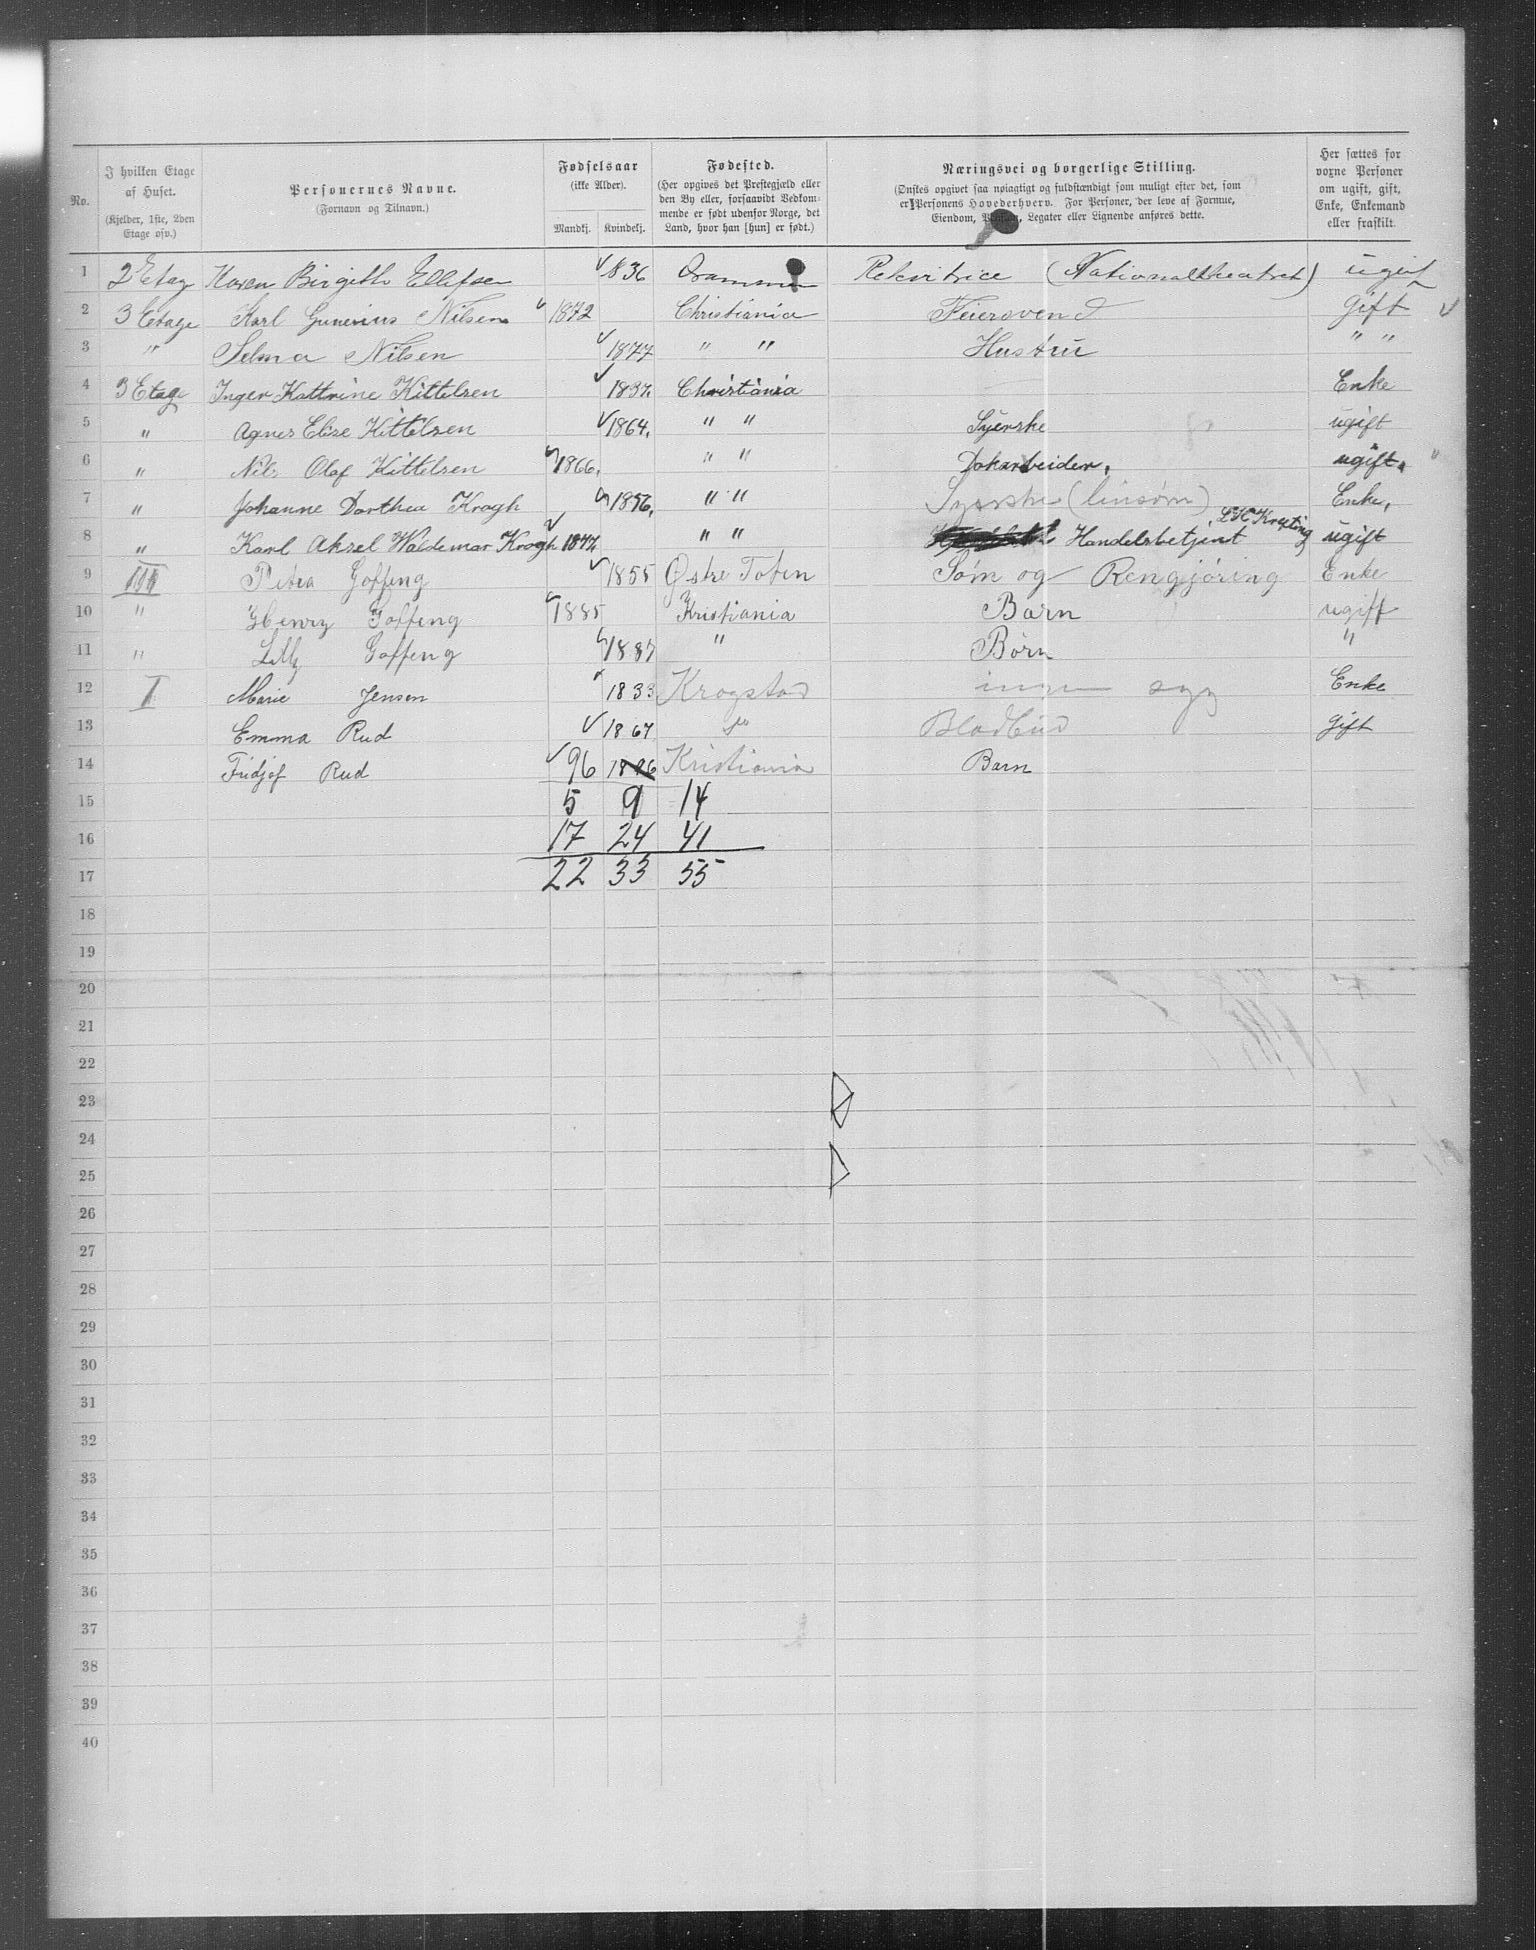 No.
I hvilken Etage af Huset. (Kjelder, 1ste, 2den Etage osv.)
Personernes Navne. (Fornavn og Tilnavn.)
Fødselsaar (ikke Alder). Mandkj. Kvindekj.
Fødested. (Her opgives det Prestegjæld eller den By eller, forsaavidt Vedkommende er født udenfor Norge, det Land, hvor han [hun] er født.)
Næringsvei og borgerlige Stilling. (Ønskes opgivet saa nøiagtigt og fuldstændigt som muligt efter det, som er Personens Hovederhverv. For Personer, der leve af Formue, Eiendom, Pension, Legater eller Lignende anføres dette.
Her sættes for voxne Personer om ugift, gift, Enke, Enkemand eller fraskilt.
1 2 Etag Karen Birgith Ellefsen 1836 Drammen Rekvitrice (Nationaltheatret) ugift
2 3 Etage Karl Gunerius Nilsen 1872 Christiania Feiersvend Gift
3 " Selma Nilsen 1877 " " Hustru " "
4 3 Etage Inger Kathrine Kittelsen 1837. Christiania Enke
5 " Agnes Elise Kittelsen 1864. " " Syerske ugift
6 " Nils Olaf Kittelsen 1866. " " Dokarbeider. ugift.
7 " Johanne Dorthea Krogh 1856. " " Syerske (linsøm) Enke.
8 " Karl Aksel Waldemar Krogh 1877. " " Handelsbetjent ugift
9 III Petra Goffeng 1855 Østre Toten Søm og Rengjøring Enke
10 " Henry Goffeng 1885 Kristiania Barn ugift
11 " Lilly Goffeng 1887 " Børn "
12 I Marie Jensen 1833 Krogstad ingen syg Enke
13 Emma Rud 1867 do Bladbud gift
14 Fridjof Rud 96 1896 Kristiania Barn
15 5 9 14
16 17 24 41
17 22 33 55
18
19
20
21
22
23
24
25
26
27
28
29
30
31
32
33
34
35
36
37
38
39
40